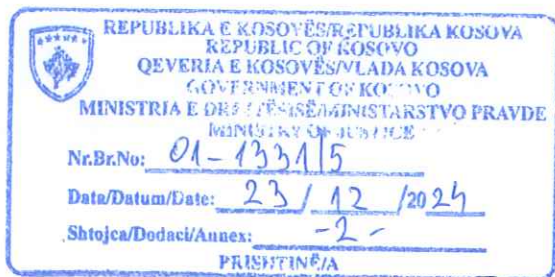 REPUBLIKA E KOSOVËS/REPUBLIKA KOSOVA
REPUBLIC OF KOSOVO
QEVERIA E KOSOVËS/VLADA KOSOVA
GOVERNMENT OF KOSOVO
MINISTRIA E DREJTËSISË/MINISTARSTVO PRAVDE
MINISTRY OF JUSTICE
Nr.Br.No: 01-1331/5
Data/Datum/Date: 23 / 12 /2024
Shtojca/Dodaci/Annex: -2-
PRISHTINË/A